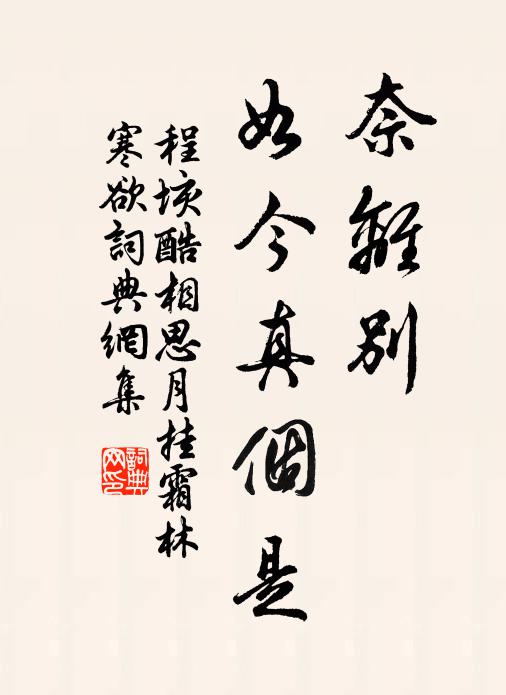 奈離別
如今真個是
程垓酷相思月挂霜林
寒欲詞典網集
詞典
网印